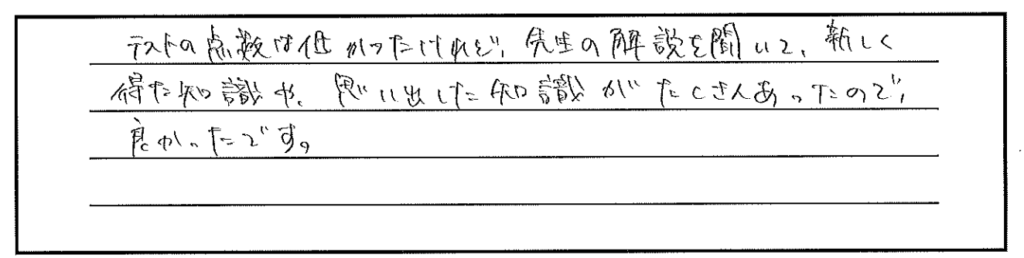 テストの点数は低かったけれど、先生の解説を聞いて、新しく
得た知識や、思い出した知識がたくさんあったので、
良かったです。